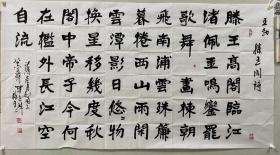 王勃
滕王阁诗
滕王高閣臨江
渚佩玉鳴鸞罷
歌舞畫棟朝
飛南浦雲珠簾
暮捲西山雨閒
雲潭影日悠悠物
換星移幾度秋
閣中帝子今何
在檻外長江空
自流